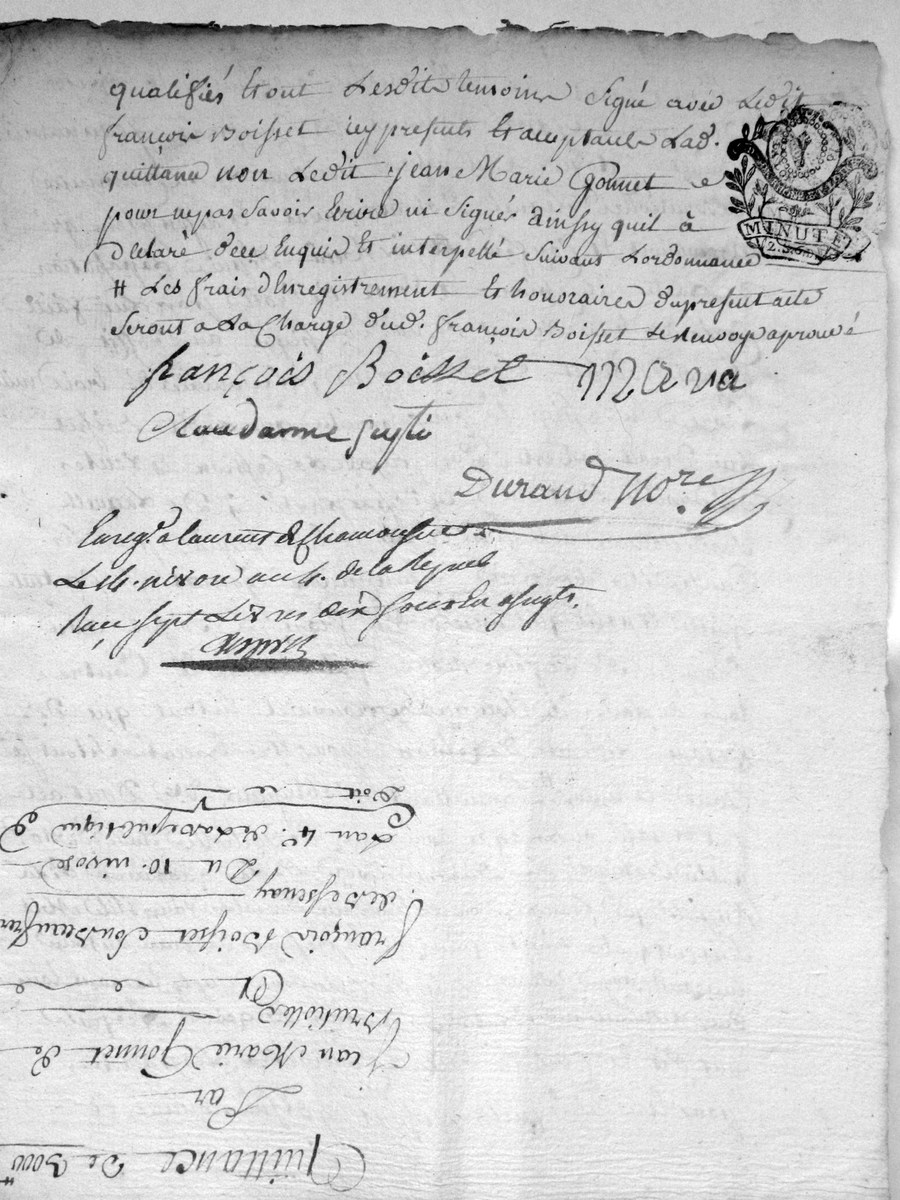 qualifiés et ont Lesdits temoins signé avec Ledit
françois Boisset icy presents et acceptant Lad.
quittance non Ledit jean Marie Gonnet
pour ne pas savoir Ecrire ni signer ainssy quil à
declaré de ce Enquis et interpellé suivant Lordonnance
# Les frais dEnregistrement et honoraires du present acte
seront a La Charge dud. françois Boisset Le renvoy aprouvé
MINUTE
françois Boisset
Claudanne
Durand Nore
Enregé a Laurent de Chamousset
Le 14. nivose an 4. de la Repub
Reçu sept Livres dix sous En assigts.
Quittance de 3000#
Par
Jean Marie Gonnet de
Brussiolles
A
françois Boisset
de Bessenay
Du 10. nivose
Lan 4e. de La republique